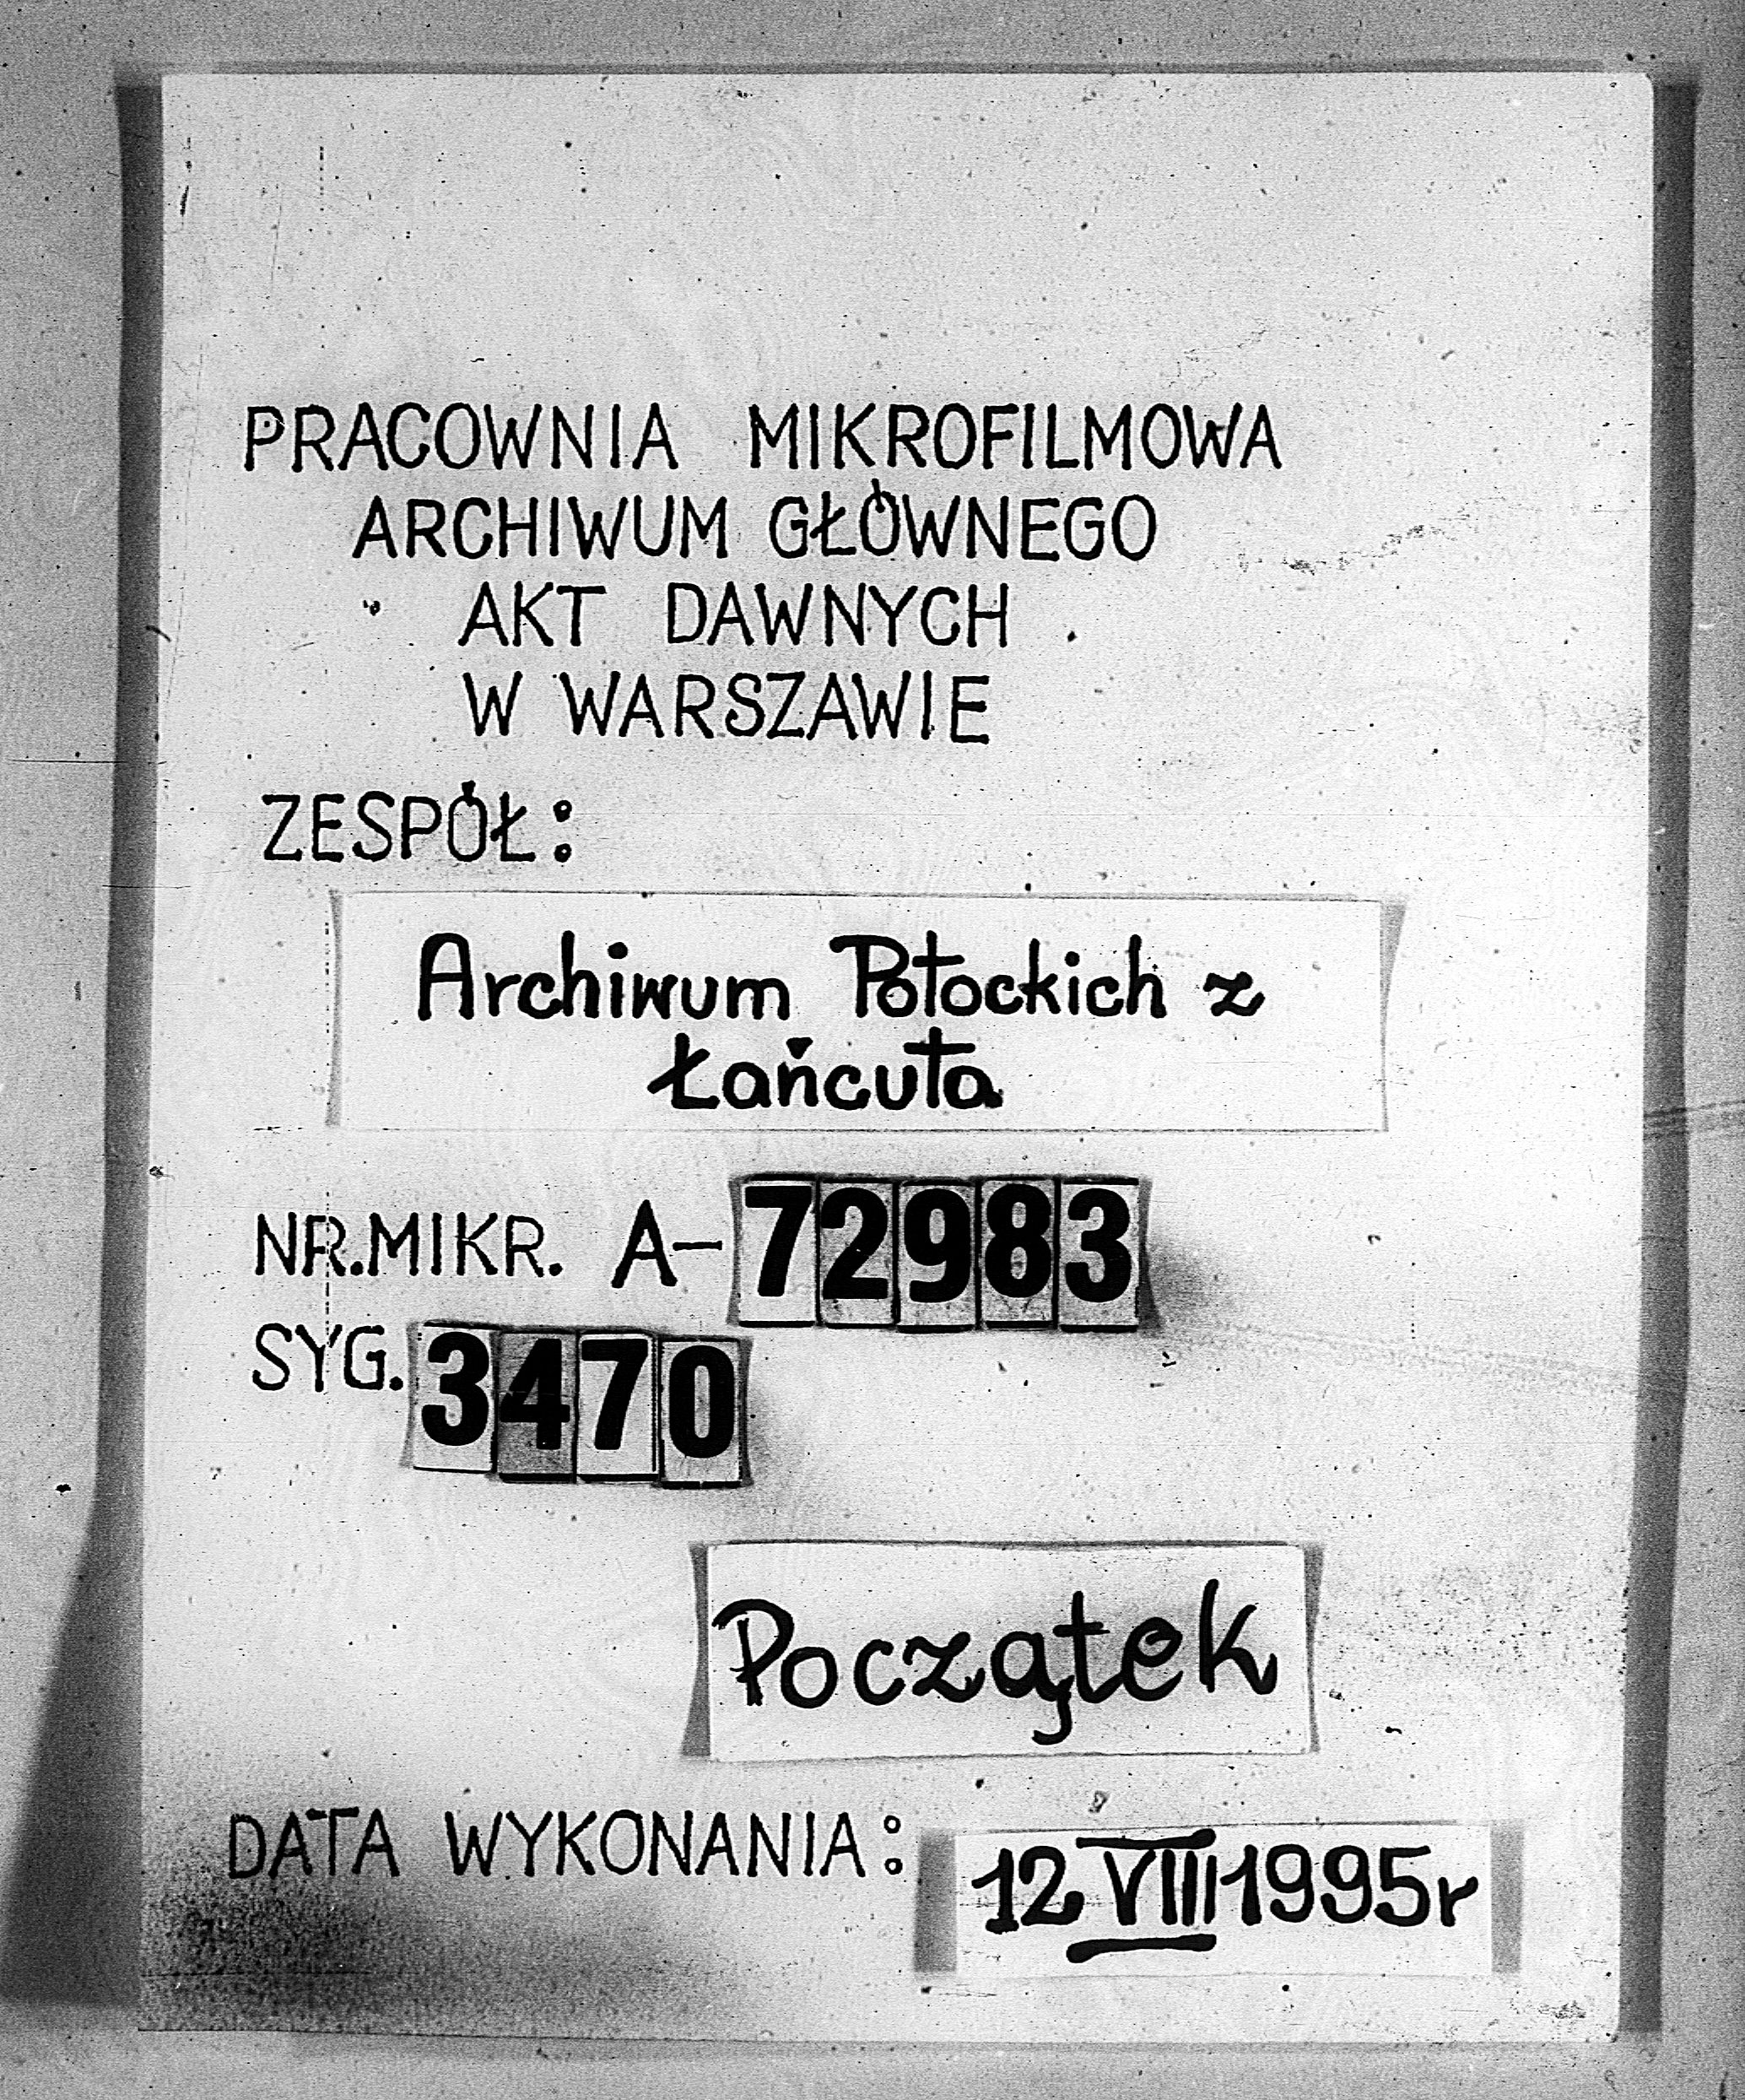 PRACOWNIA MIKROFILMOWA
ARCHIWUM GŁÓWNEGO
AKT DAWNYCH
W WARSZAWIE
ZESPÓŁ:
Archiwum Potockich z
Łańcuta
NR.MIKR. A-72983
SYG. 3470
Początek
DATA WYKONANIA: 12 VIII 1995r